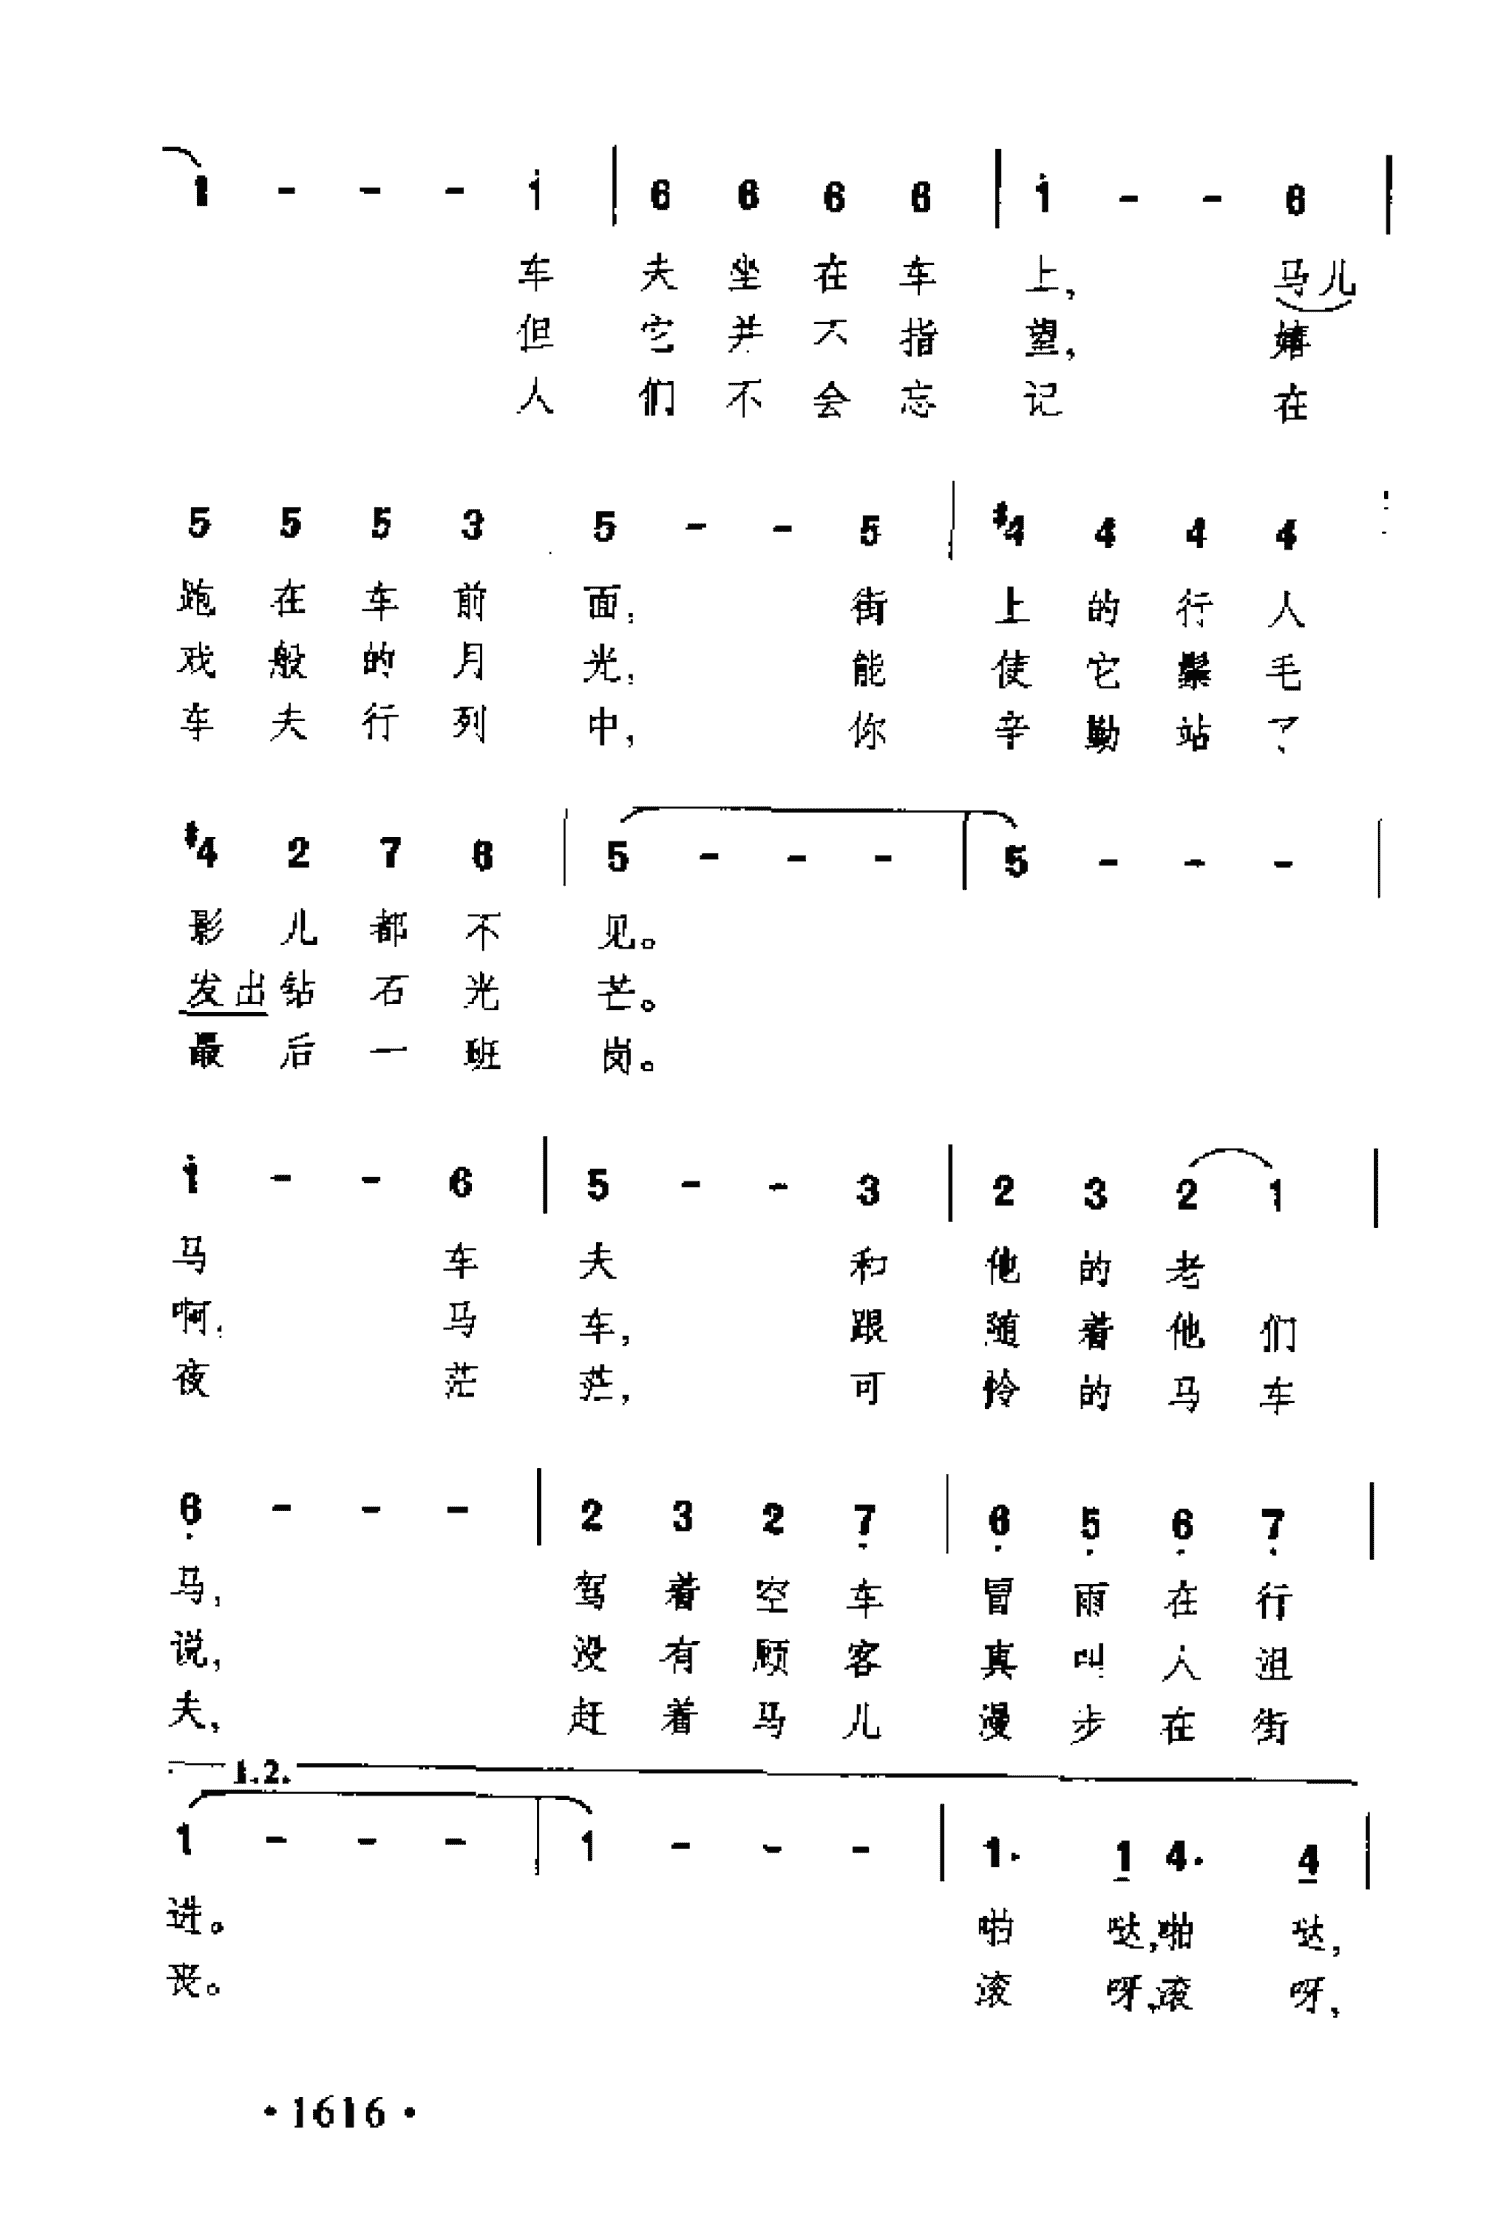 1 - - - i | 6 6 6 6 | i - - 6 |
车 夫 坐 在 车 上， 马儿
但 它 并 不 指 望， 嬉
人 们 不 会 忘 记 在
5 5 5 3 5 - - 5 | #4 4 4 4
跑 在 车 前 面， 街 上 的 行 人
戏 般 的 月 光， 能 使 它 鬃 毛
车 夫 行 列 中， 你 辛 勤 站 了
#4 2 7 6 | 5 - - - | 5 - - - |
影 儿 都 不 见。
发出 钻 石 光 芒。
最 后 一 班 岗。
i - - 6 | 5 - - 3 | 2 3 2 1 |
马 车 夫 和 他 的 老
啊， 马 车， 跟 随 着 他 们
夜 茫 茫， 可 怜 的 马 车
6̣ - - - | 2 3 2 7̣ | 6̣ 5̣ 6̣ 7̣ |
马， 驾 着 空 车 冒 雨 在 行
说， 没 有 顾 客 真 叫 人 沮
夫， 赶 着 马 儿 漫 步 在 街
1.2.
1 - - - | 1 - - - | 1. 1 4. 4 |
进。 啪 哒，啪 哒，
丧。 滚 呀，滚 呀，
·1616·